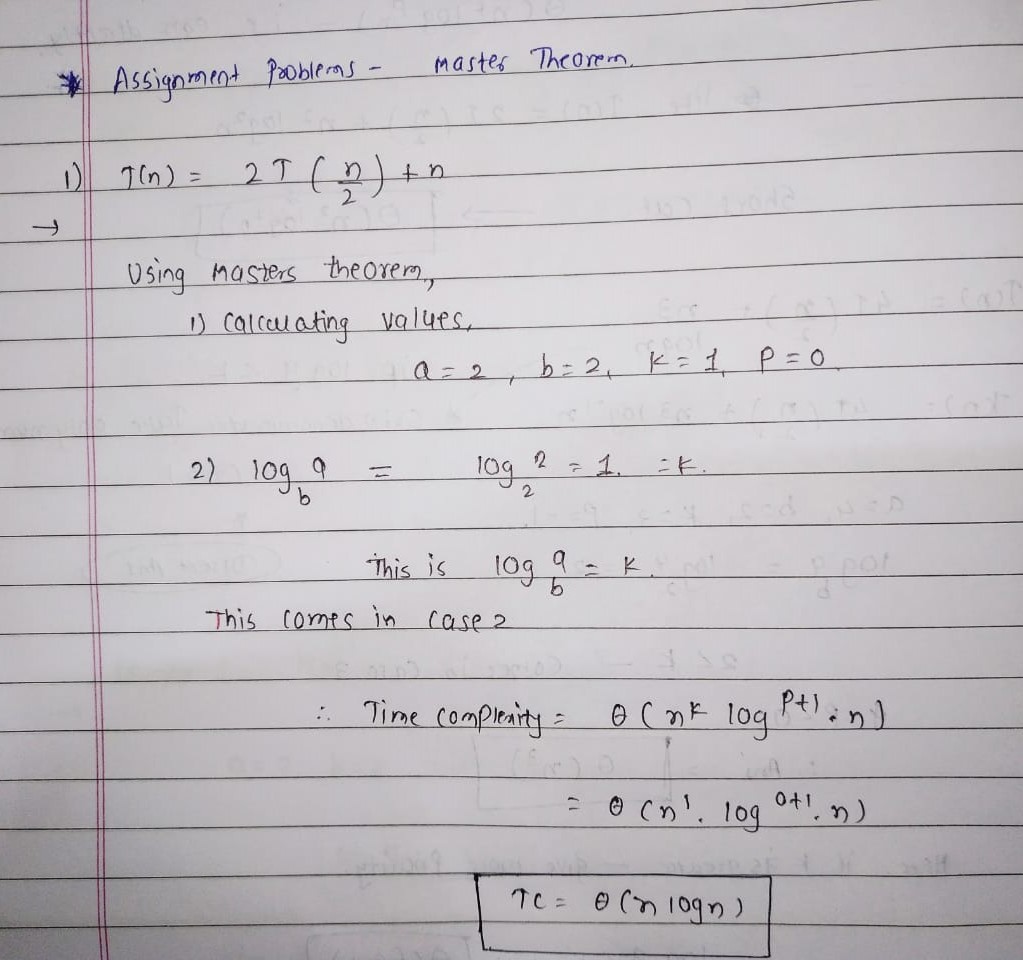 * Assignment Problems - Master Theorem.
1) T(n) = 2T (n/2) + n
→
Using Masters theorem,
1) Calculating values,
a = 2, b = 2, k = 1, P = 0.
2) log_b a = log_2 2 = 1. = k.
This is log_b a = k.
This comes in case 2
∴ Time Complexity = θ(n^k log^(P+1) . n)
= θ(n^1 . log^(0+1) . n)
TC = θ(n logn)